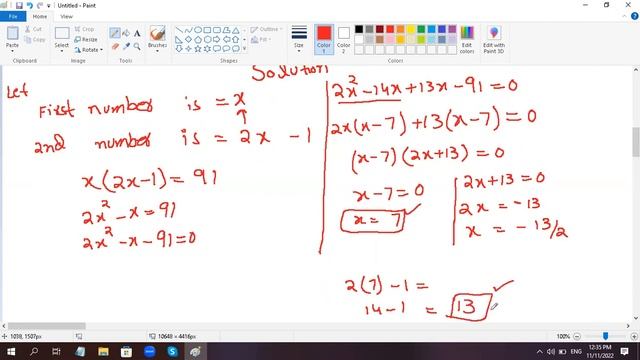 Untitled - Paint
Paste
Select
Brushes
Shapes
Outline
Fill
Size
Color 1
Color 2
Edit colors
Edit with Paint 3D
Clipboard
Image
Tools
Shapes
Colors
Solution
Let
First number is = x
↑
2nd number is = 2x - 1
x(2x-1) = 91
2x² - x = 91
2x² - x - 91 = 0
2x² - 14x + 13x - 91 = 0
2x(x-7) + 13(x-7) = 0
(x-7)(2x+13) = 0
x - 7 = 0
x = 7 ✓
2x + 13 = 0
2x = -13
x = - 13/2
2(7) - 1 =
14 - 1 = 13 ✓
1038, 1507px
10648 × 4416px
100%
12:35 PM
11/11/2022